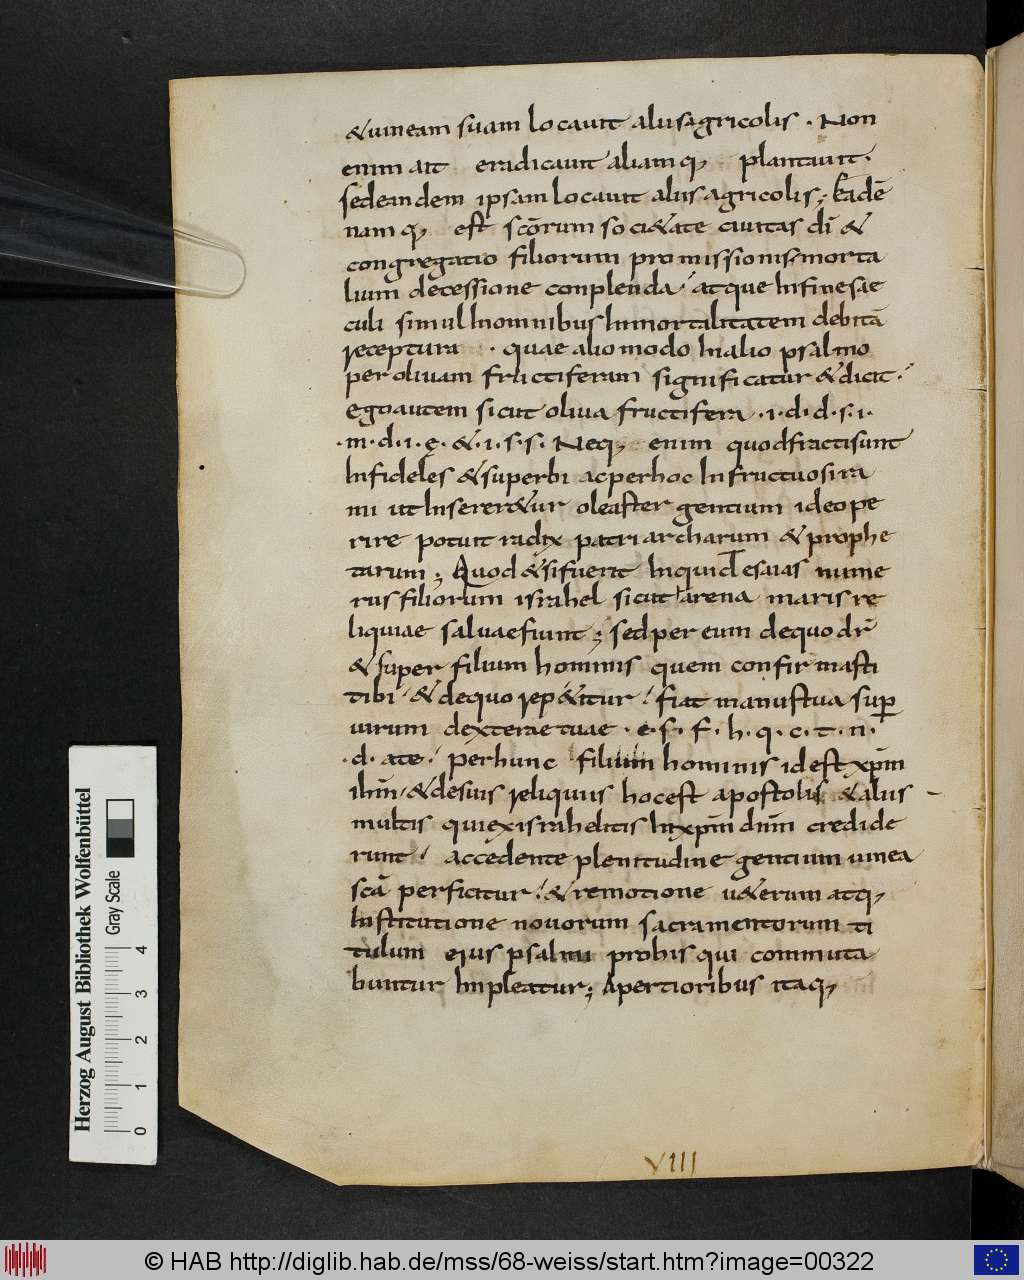 &uineam suam locauit aliis agricolis . Non
enim ait eradicauit aliam q; plantauit .
sed eandem ipsam locauit aliis agricolis ; Eadē
nam q; est scōrum soci&ate ciuitas dī &
congregatio filiorum promissionis morta
lium decessione conplenda / atque In fine sae
culi simul In omnibus Inmortalitatem debitā
receptura . quae alio modo In alio psalmo
per oliuam fructiferam significatur & dicit .
ego autem sicut oliua fructifera . i . d . d . s . i .
. m . d . i . ę . & . i . s . s . Neq; enim quod fracti sunt
Infideles & superbi ac per hoc Infructuosi ra
mi ut Inserer&ur oleaster gentium ideo pe
rire potuit radix patriarcharum & prophe
tarum ; Quod & si fuerit Inquid esaias nume
rus filiorum israhel sicut arena maris re
liquiae saluae fiunt ; sed per eum de quo dr̄
& super filium hominis quem confirmasti
tibi / & de quo rep&itur / fiat manus tua sup
uirum dexterae tuae . e . s . f . h . q . c . t . n .
. d . a te / per hunc filium hominis id est xp̄m
ihm̄ / & de suis reliquiis hoc est apostolis & aliis
multis qui ex israhelitis In xp̄m dnm̄ credide
runt / accedente plenitudine gentium uinea
scā perficitur / & remotione u&erum atq;
Institutione nouorum sacramentorum ti
tulum eius psalmi pro his qui commuta
buntur Impleatur ; Apertioribus itaq;
VIII
Herzog August Bibliothek Wolfenbüttel
Gray Scale
0 1 2 3 4
© HAB http://diglib.hab.de/mss/68-weiss/start.htm?image=00322